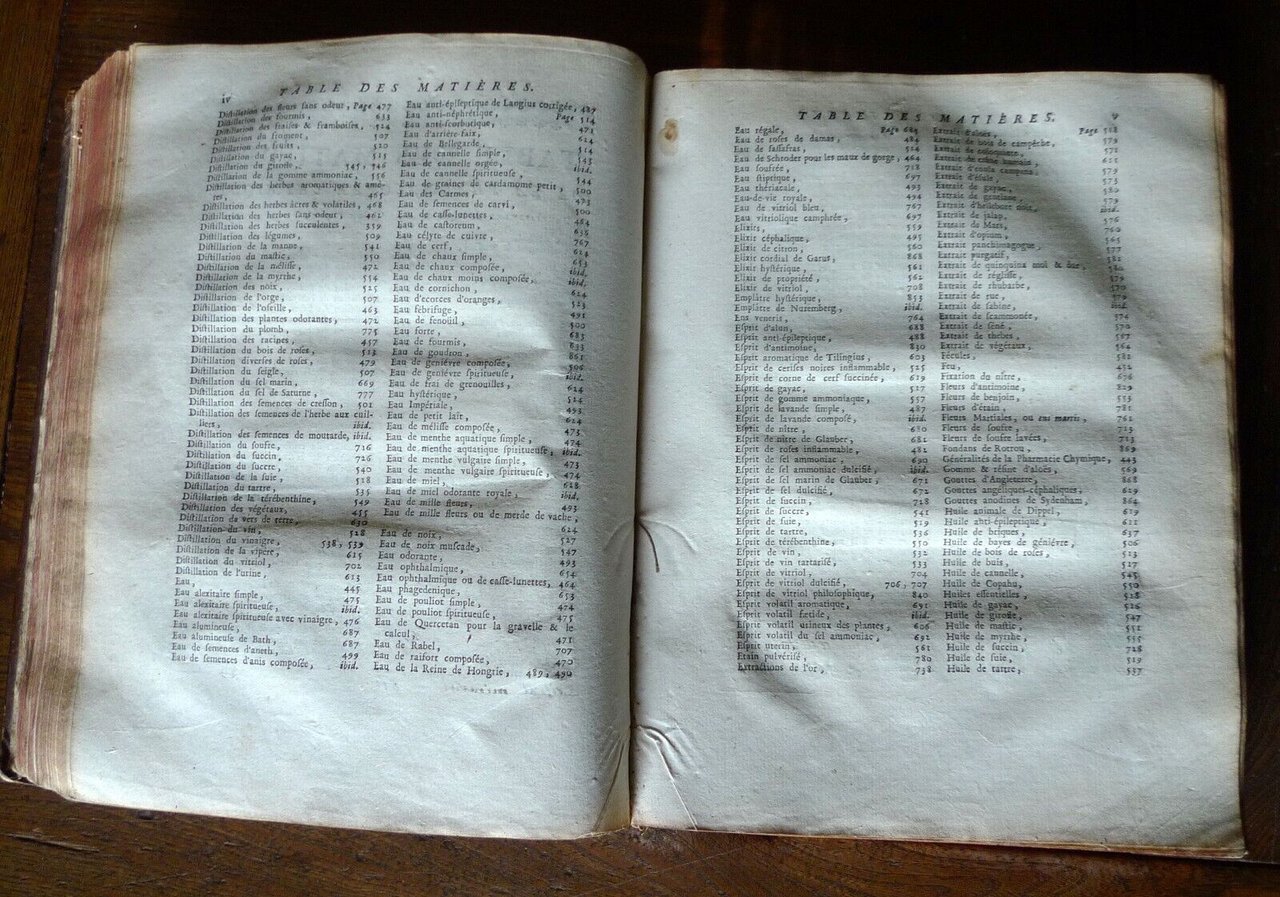 iv TABLE DES MATIÈRES.
Diſtillation des fleurs ſans odeur, Page 477
Diſtillation des fourmis, 633
Diſtillation des fraiſes & framboiſes, 524
Diſtillation du froment, 507
Diſtillation des fruits, 520
Diſtillation du gayac, 525
Diſtillation du girofle, 545, 546
Diſtillation de la gomme ammoniac, 556
Diſtillation des herbes aromatiques & amères, 465
Diſtillation des herbes âcres & volatiles, 468
Diſtillation des herbes ſans odeur, 462
Diſtillation des herbes ſucculentes, 359
Diſtillation des légumes, 509
Diſtillation de la manne, 541
Diſtillation du maſtic, 550
Diſtillation de la méliſſe, 472
Diſtillation de la myrrhe, 554
Diſtillation des noix, 525
Diſtillation de l'orge, 507
Diſtillation de l'oſeille, 463
Diſtillation des plantes odorantes, 472
Diſtillation du plomb, 775
Diſtillation des racines, 457
Diſtillation du bois de roſes, 513
Diſtillation diverſes de roſes, 479
Diſtillation du ſeigle, 507
Diſtillation du ſel marin, 669
Diſtillation du ſel de Saturne, 777
Diſtillation des ſemences de creſſon, 501
Diſtillation des ſemences de l'herbe aux cuillers, ibid.
Diſtillation des ſemences de moutarde, ibid.
Diſtillation du ſoufre, 716
Diſtillation du ſuccin, 726
Diſtillation du ſucre, 540
Diſtillation de la ſuie, 518
Diſtillation du tartre, 535
Diſtillation de la térébenthine, 549
Diſtillation des végétaux, 455
Diſtillation de vers de terre, 630
Diſtillation du vin, 528
Diſtillation du vinaigre, 538, 539
Diſtillation de la vipère, 615
Diſtillation du vitriol, 702
Diſtillation de l'urine, 613
Eau, 445
Eau alexitaire ſimple, 475
Eau alexitaire ſpiritueuſe, ibid.
Eau alexitaire ſpiritueuſe avec vinaigre, 476
Eau alumineuſe, 687
Eau alumineuſe de Bath, 687
Eau de ſemences d'aneth, 499
Eau de ſemences d'anis compoſée, ibid.
Eau anti-épileptique de Langius corrigée, 487
Eau anti-néphrétique, Page 514
Eau anti-ſcorbutique, 471
Eau d'arrière-faix, 624
Eau de Bellegarde, 514
Eau de cannelle ſimple, 543
Eau de cannelle orgée, ibid.
Eau de cannelle ſpiritueuſe, 544
Eau de graines de cardamome petit, 500
Eau des Carmes, 473
Eau de ſemences de carvi, 500
Eau de caſſe-lunettes, 464
Eau de caſtoreum, 635
Eau célyte de cuivre, 767
Eau de cerf, 624
Eau de chaux ſimple, 653
Eau de chaux compoſée, ibid.
Eau de chaux moins compoſée, ibid.
Eau de cornichon, 624
Eau d'ecorces d'oranges, 523
Eau febrifuge, 491
Eau de fenoüil, 500
Eau forte, 683
Eau de fourmis, 633
Eau de goudron, 861
Eau de genièvre compoſée, 506
Eau de genièvre ſpiritueuſe, ibid.
Eau de frai de grenouilles, 624
Eau hyſtérique, 514
Eau Impériale, 493
Eau de petit lait, 624
Eau de méliſſe compoſée, 473
Eau de menthe aquatique ſimple, 474
Eau de menthe aquatique ſpiritueuſe, ibid.
Eau de menthe vulgaire ſimple, 473
Eau de menthe vulgaire ſpiritueuſe, 474
Eau de miel, 628
Eau de miel odorante royale, ibid.
Eau de mille fleurs, 493
Eau de mille fleurs ou de merde de vache, 624
Eau de noix, 527
Eau de noix muſcade, 547
Eau odorante, 493
Eau ophthalmique, 654
Eau ophthalmique ou de caſſe-lunettes, 464
Eau phagedénique, 653
Eau de pouliot ſimple, 474
Eau de pouliot ſpiritueuſe, 475
Eau de Quercetan pour la gravelle & le
calcul, 471
Eau de Rabel, 707
Eau de raifort compoſée, 470
Eau de la Reine de Hongrie, 489, 490
TABLE DES MATIÈRES. v
Eau régale, Page 685
Eau de roſes de damas, 484
Eau de ſaſſafras, 514
Eau de Schroder pour les maux de gorge, 464
Eau ſoufrée, 718
Eau ſtiptique, 697
Eau thériacale, 493
Eau-de-vie royale, 494
Eau de vitriol bleu, 767
Eau vitriolique camphrée, 697
Elixirs, 559
Elixir céphalique, 495
Elixir de citron, 560
Elixir cordial de Garus, 868
Elixir hyſtérique, 561
Elixir de propriété, 562
Elixir de vitriol, 708
Emplâtre hyſtérique, 853
Emplâtre de Nuremberg, ibid.
Ens veneris, 764
Eſprit d'alun, 688
Eſprit anti-épileptique, 488
Eſprit d'antimoine, 830
Eſprit aromatique de Tilingius, 603
Eſprit de ceriſes noires inflammable, 525
Eſprit de corne de cerf ſuccinée, 619
Eſprit de gayac, 517
Eſprit de gomme ammoniaque, 557
Eſprit de lavande ſimple, 487
Eſprit de lavande compoſé, ibid.
Eſprit de nitre, 680
Eſprit de nitre de Glauber, 681
Eſprit de roſes inflammable, 481
Eſprit de ſel ammoniac, 690
Eſprit de ſel ammoniac dulcifié, ibid.
Eſprit de ſel marin de Glauber, 671
Eſprit de ſel dulcifié, 672
Eſprit de ſuccin, 728
Eſprit de ſucre, 541
Eſprit de ſuie, 519
Eſprit de tartre, 536
Eſprit de térébenthine, 550
Eſprit de vin, 532
Eſprit de vin tartariſé, 533
Eſprit de vitriol, 704
Eſprit de vitriol dulcifié, 706, 707
Eſprit de vitriol philoſophique, 840
Eſprit volatil aromatique, 691
Eſprit volatil fœtide, ibid.
Eſprit volatil urineux des plantes, 606
Eſprit volatil du ſel ammoniac, 692
Eſprit uterin, 561
Etain pulvériſé, 780
Extractions de l'or, 738
Extrait d'aloës, Page 568
Extrait de bois de campêche,
Extrait de coloquinte, 572
Extrait de crâne humain, 655
Extrait d'enula campana, 573
Extrait d'éſule, 579
Extrait de gayac, 580
Extrait de gentiane, 579
Extrait d'hellébore noir, ibid.
Extrait de jalap, 576
Extrait de Mars, 760
Extrait d'opium, 565
Extrait panchimagogue, 577
Extrait purgatif, 581
Extrait de quinquina mol & dur, 580
Extrait de régliſſe, 579
Extrait de rhubarbe, 570
Extrait de rue, 579
Extrait de ſabine, ibid.
Extrait de ſcammonée, 574
Extrait de ſéné, 570
Extrait de thèbes, 567
Extrait de végétaux, 564
Fécules, 581
Feu, 452
Fixation du nitre, 676
Fleurs d'antimoine, 829
Fleurs de benjoin, 553
Fleurs d'étain, 781
Fleurs Martiales, ou ens martis, 762
Fleurs de ſoufre, 713
Fleurs de ſoufre lavées, 713
Fondans de Rotrou, 869
Généralités de la Pharmacie Chymique, 443
Gomme & réſine d'aloës, 569
Gouttes d'Angleterre, 868
Gouttes angéliques-céphaliques, 619
Gouttes anodines de Sydenham, 864
Huile animale de Dippel, 619
Huile anti-épileptique, 621
Huile de briques, 637
Huile de bayes de genièvre, 506
Huile de bois de roſes, 513
Huile de buis, 517
Huile de cannelle, 545
Huile de Copahu, 550
Huiles eſſentielles, 528
Huile de gayac, 526
Huile de girofle, 547
Huile de maſtic, 551
Huile de myrrhe, 555
Huile de ſuccin, 728
Huile de ſuie, 519
Huile de tartre, 537